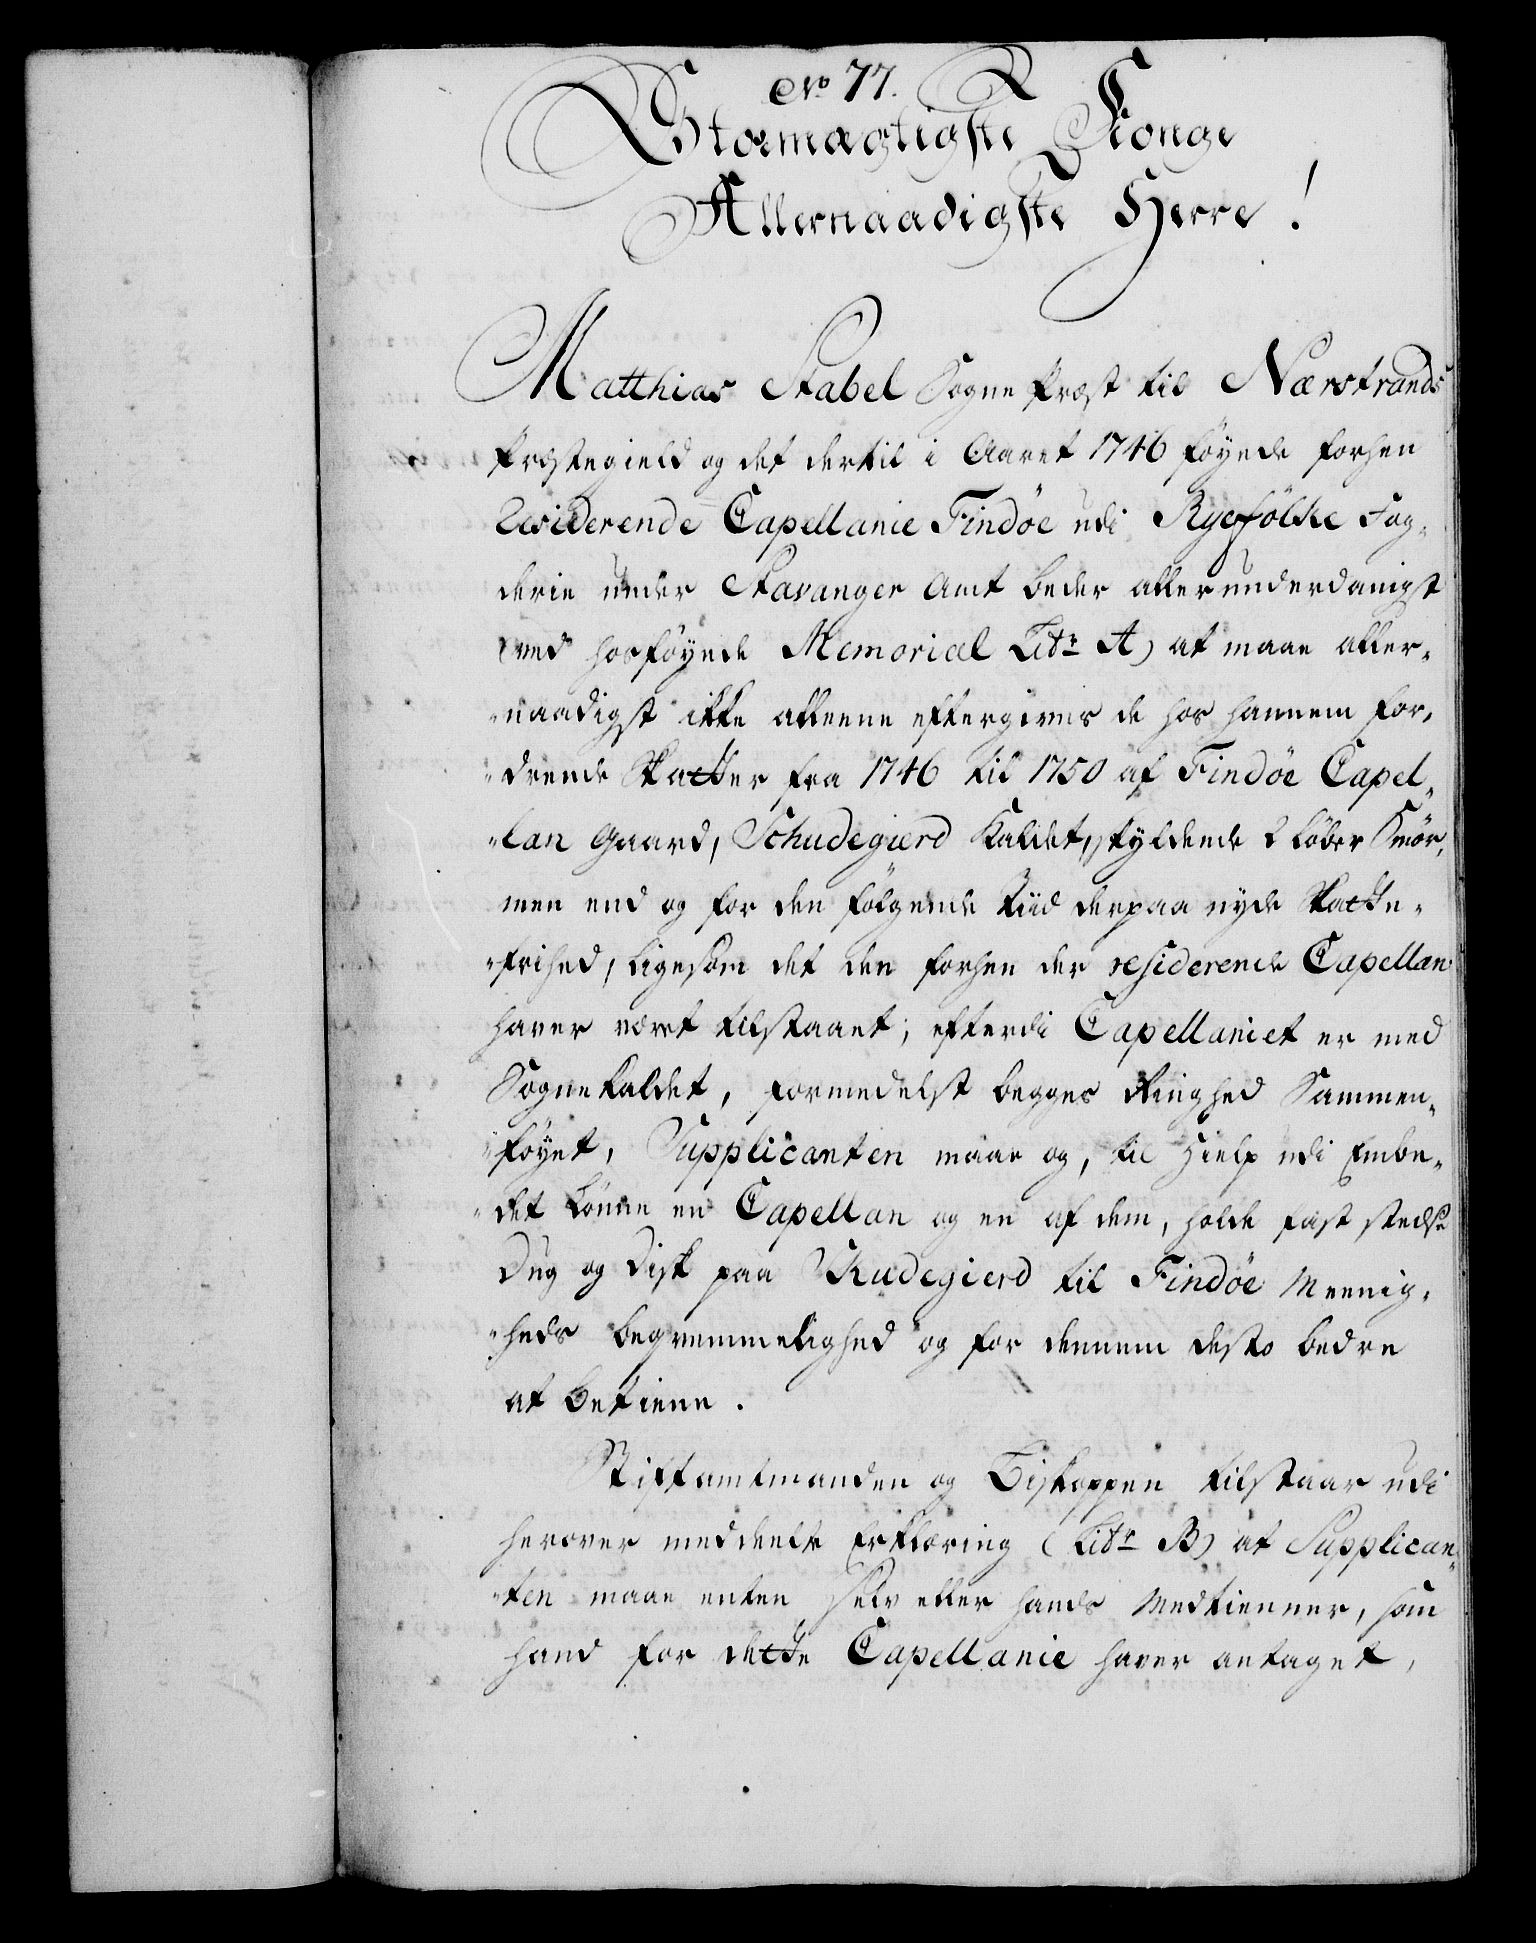 No 77.
Stormægtigste Konge
Allernaadigste Herre!
Matthias Stabel Sogne Præst til Nærstrands
Præstegield og det dertil i Aaret 1746 føyede forhen
Residerende Capellanie Findöe udi Ryefölke Fog-
derie under Stavanger Amt beder allerunderdanigst
ved hosføyede Memorial Litr A) at maae aller-
naadigst ikke alleene eftergives de hos hannem for-
drende Skatter fra 1746 til 1750 af Findöe Capel-
lan Gaard, Schudegierd kaldet, skyldende 2 Løber Smör,
men end og for den følgende Tiid derpaa nyde Skatte-
frihed, ligesom det den forhen der residerende Capellan
haver været tilstaaet; efterdi Capellaniet er med
Sognekaldet, formedelst begges Ringhed Sammen-
føyet, Supplicanten maae og, til Hielp udi Embe-
det lönne en Capellan og en af dem, holde fast stedse
Dug og Disk paa Skudegierd til Findöe Meenig-
heds beqvemmelighed og for dennem desto bedre
at betiene.
Stiftamtmanden og Biskoppen tilstaar udi
herover meddeelte Erklæring (Litr B) at Supplican-
ten maae enten Selv eller hands Medtienner, som
hand for dette Capellanie haver antaget,